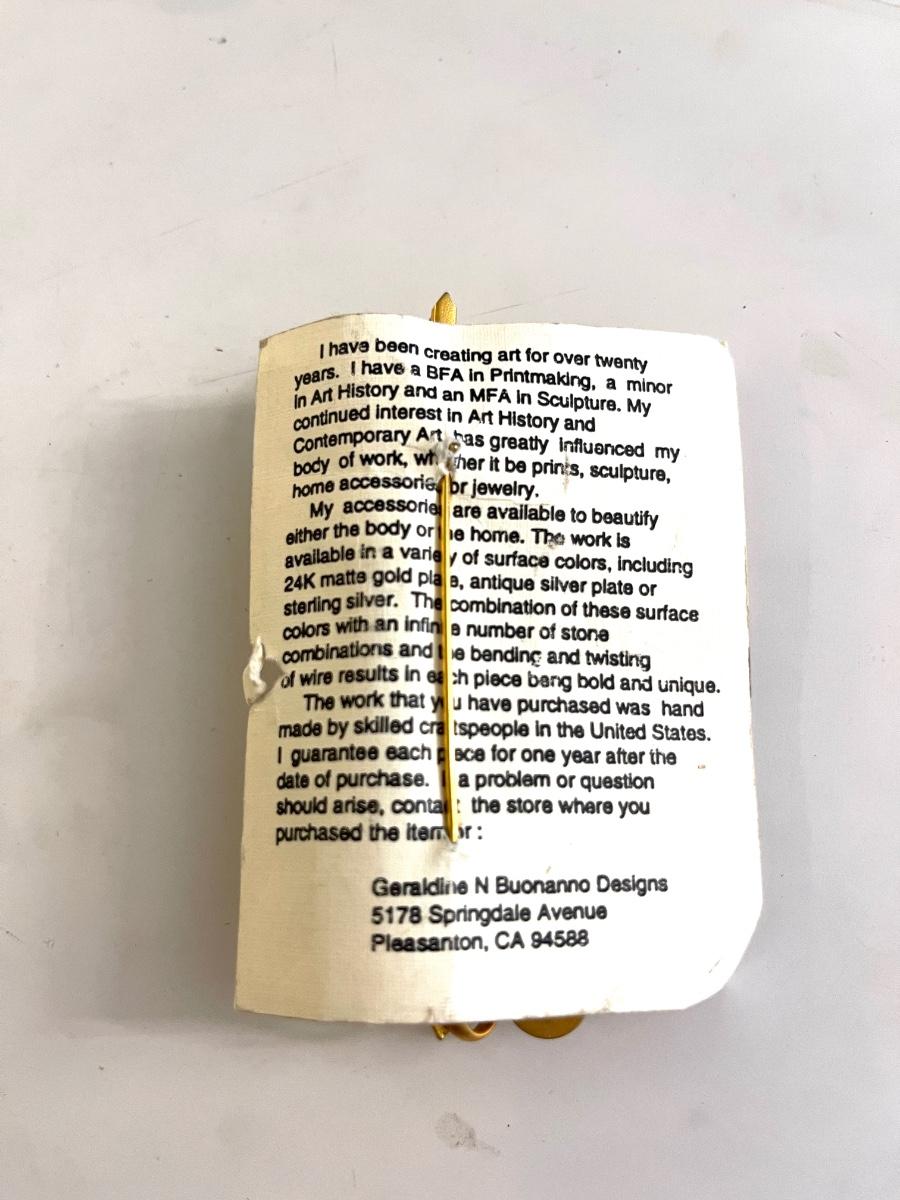 I have been creating art for over twenty
years. I have a BFA in Printmaking, a minor
in Art History and an MFA in Sculpture. My
continued interest in Art History and
Contemporary Art has greatly influenced my
body of work, whether it be prints, sculpture,
home accessories or jewelry.
My accessories are available to beautify
either the body or the home. The work is
available in a variety of surface colors, including
24K matte gold plate, antique silver plate or
sterling silver. The combination of these surface
colors with an infinite number of stone
combinations and the bending and twisting
of wire results in each piece beng bold and unique.
The work that you have purchased was hand
made by skilled craftspeople in the United States.
I guarantee each piece for one year after the
date of purchase. If a problem or question
should arise, contact the store where you
purchased the item or :
Geraldine N Buonanno Designs
5178 Springdale Avenue
Pleasanton, CA 94588